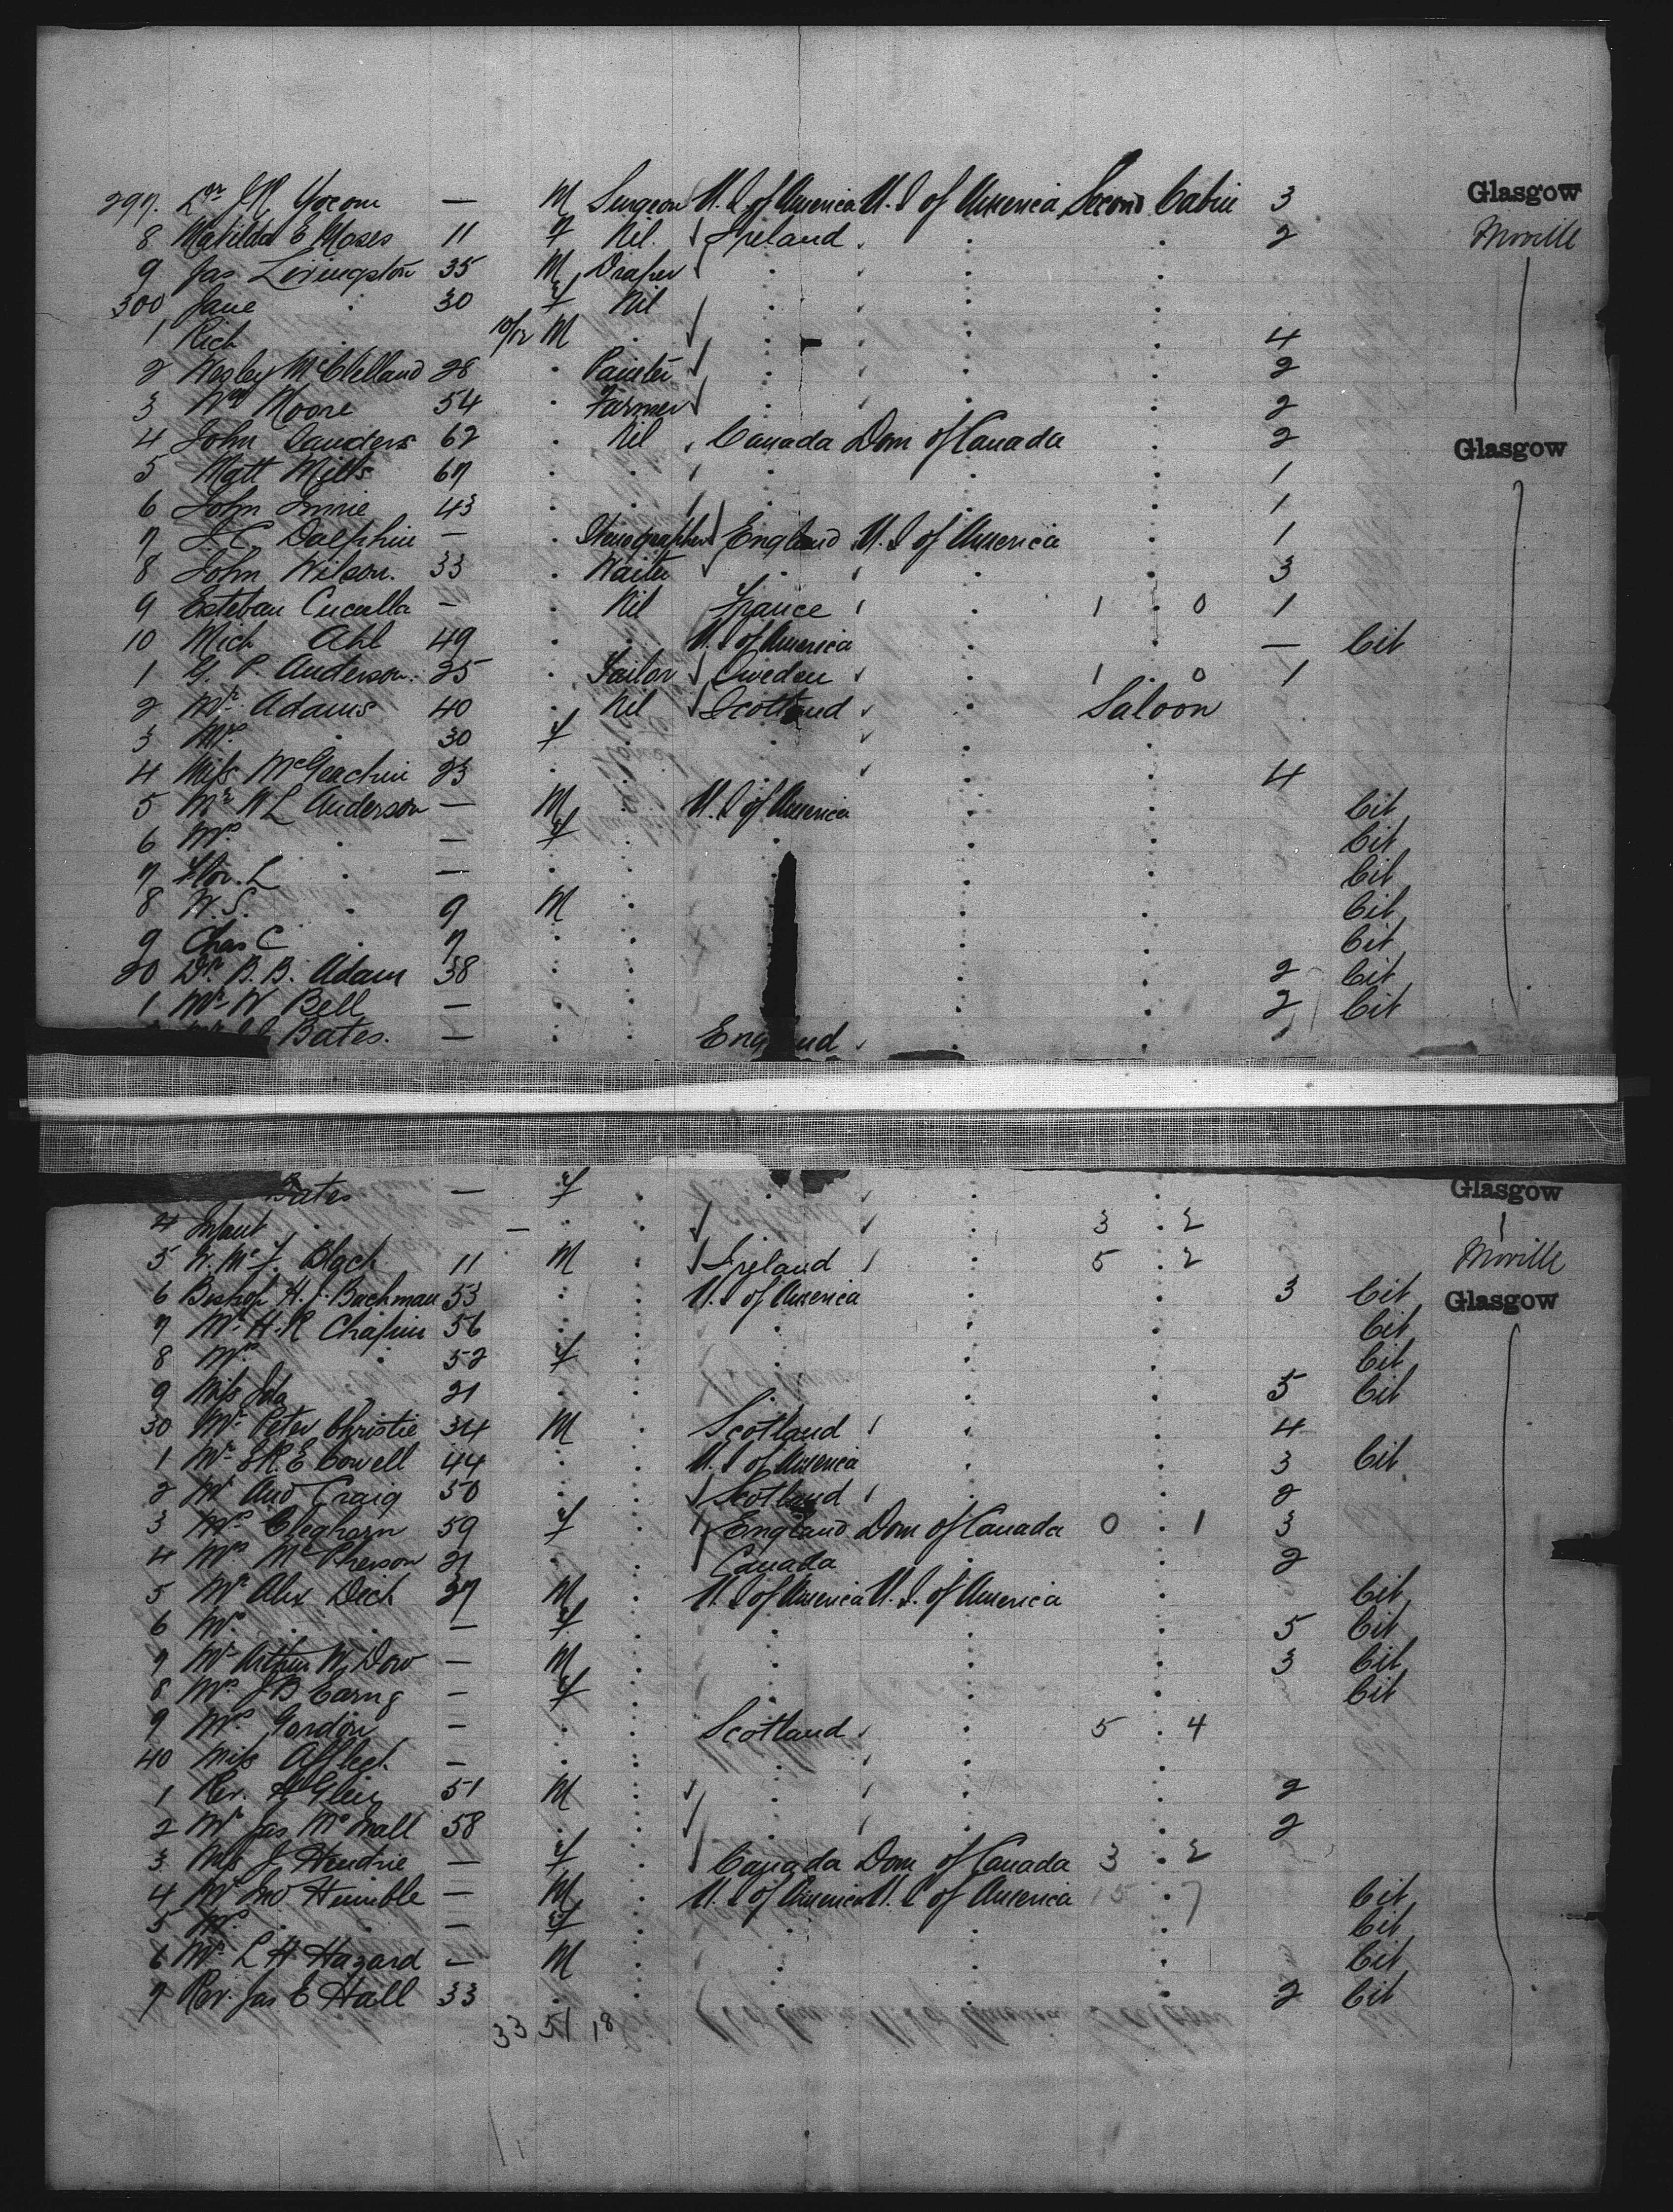 297. Dr J.R. Yocom — M Surgeon U.S. of America U.S of America Second Cabin 3 Glasgow
8 Matilda E Moses 11 F Nil. Ireland . . . 2 Moville
9 Jas Livingston 35 M Draper . . . .
300 Jane . 30 F Nil . . . .
1 Rich . 10/12 M . . . . . 4
2 Wesley McClelland 28 . Painter . . . . 2
3 Wm Moore 54 . Farmer . . . . 2
4 John Sanders 62 . Nil Canada Dom of Canada . 2 Glasgow
5 Matt Mills 67 . . . . . . 1
6 John Imrie 43 . . . . . . 1
7 J.C. Dalphin — . Stenographer England U.S of America . 1
8 John Wilson. 33 . Waiter . . . 3
9 Esteban Cucalla — . Nil France . 1 . 0 1
10 Mich Ahl 49 . . U.S of America . . — Cit
1 G. P. Anderson. 25 . Tailor Sweden . 1 . 0 1
2 Mr Adams 40 . Nil Scotland . Saloon
3 Mrs . 30 F . . . .
4 Miss McGeachin 23 . . . . . 4
5 Mr W L Anderson — M . U.S of America . . Cit
6 Mrs . — F . . . . Cit
7 Flor. L . — . . . . Cit
8 W.S. . 9 M . . . Cit
9 Chas C . 7 . . . . Cit
20 Dr. B.B. Adam 38 . . . . 2 Cit
1 Mr W Bell — . . . . 2 Cit
Bates. — . . England . .
Bates — F . . . . Glasgow
4 Infant . — . . . . 3 . 2
5 W. McF. Black 11 M . Ireland . 5 . 2 Moville
6 Bishop H.J. Bachman 53 . . U.S of America . . 3 Cit Glasgow
7 Mr H.R Chapin 56 . . . . . Cit
8 Mrs . 52 F . . . . Cit
9 Miss Ida " 21 . . . . . 5 Cit
30 Mr Peter Christie 34 M . Scotland . . 4
1 Mr S.R.E Cowell 44 . . U.S of America . . 3 Cit
2 Mr And Craig 50 . . Scotland . . 2
3 Mrs Cleghorn 59 F . England Dom of Canada 0 . 1 3
4 Mrs McPherson 21 . . Canada . . 2
5 Mr Alex Dick 27 M . U.S of America U.S. of America . Cit
6 Mrs . . — F . . . . 5 Cit
7 Mr Arthur W. Dow — M . . . . 3 Cit
8 Mrs J.B — F . . . . Cit
9 Mrs Gordon — . . Scotland . 5 . 4
40 Miss Affleck. — . . . . .
1 Rev. 51 M . . . . 2
2 Mr Jas 58 . . . . . 2
3 Miss J. Hendrie — F . Canada Dom of Canada 3 . 2
4 Mr Jno Humble — M . U.S of America U.S of America 5 . 7 Cit
5 Mrs . . — F . . . . Cit
6 Mr L H Hazard — M . . . . Cit
7 Rev. Jas E Hall 33 . . . . . 2 Cit
33 51 18